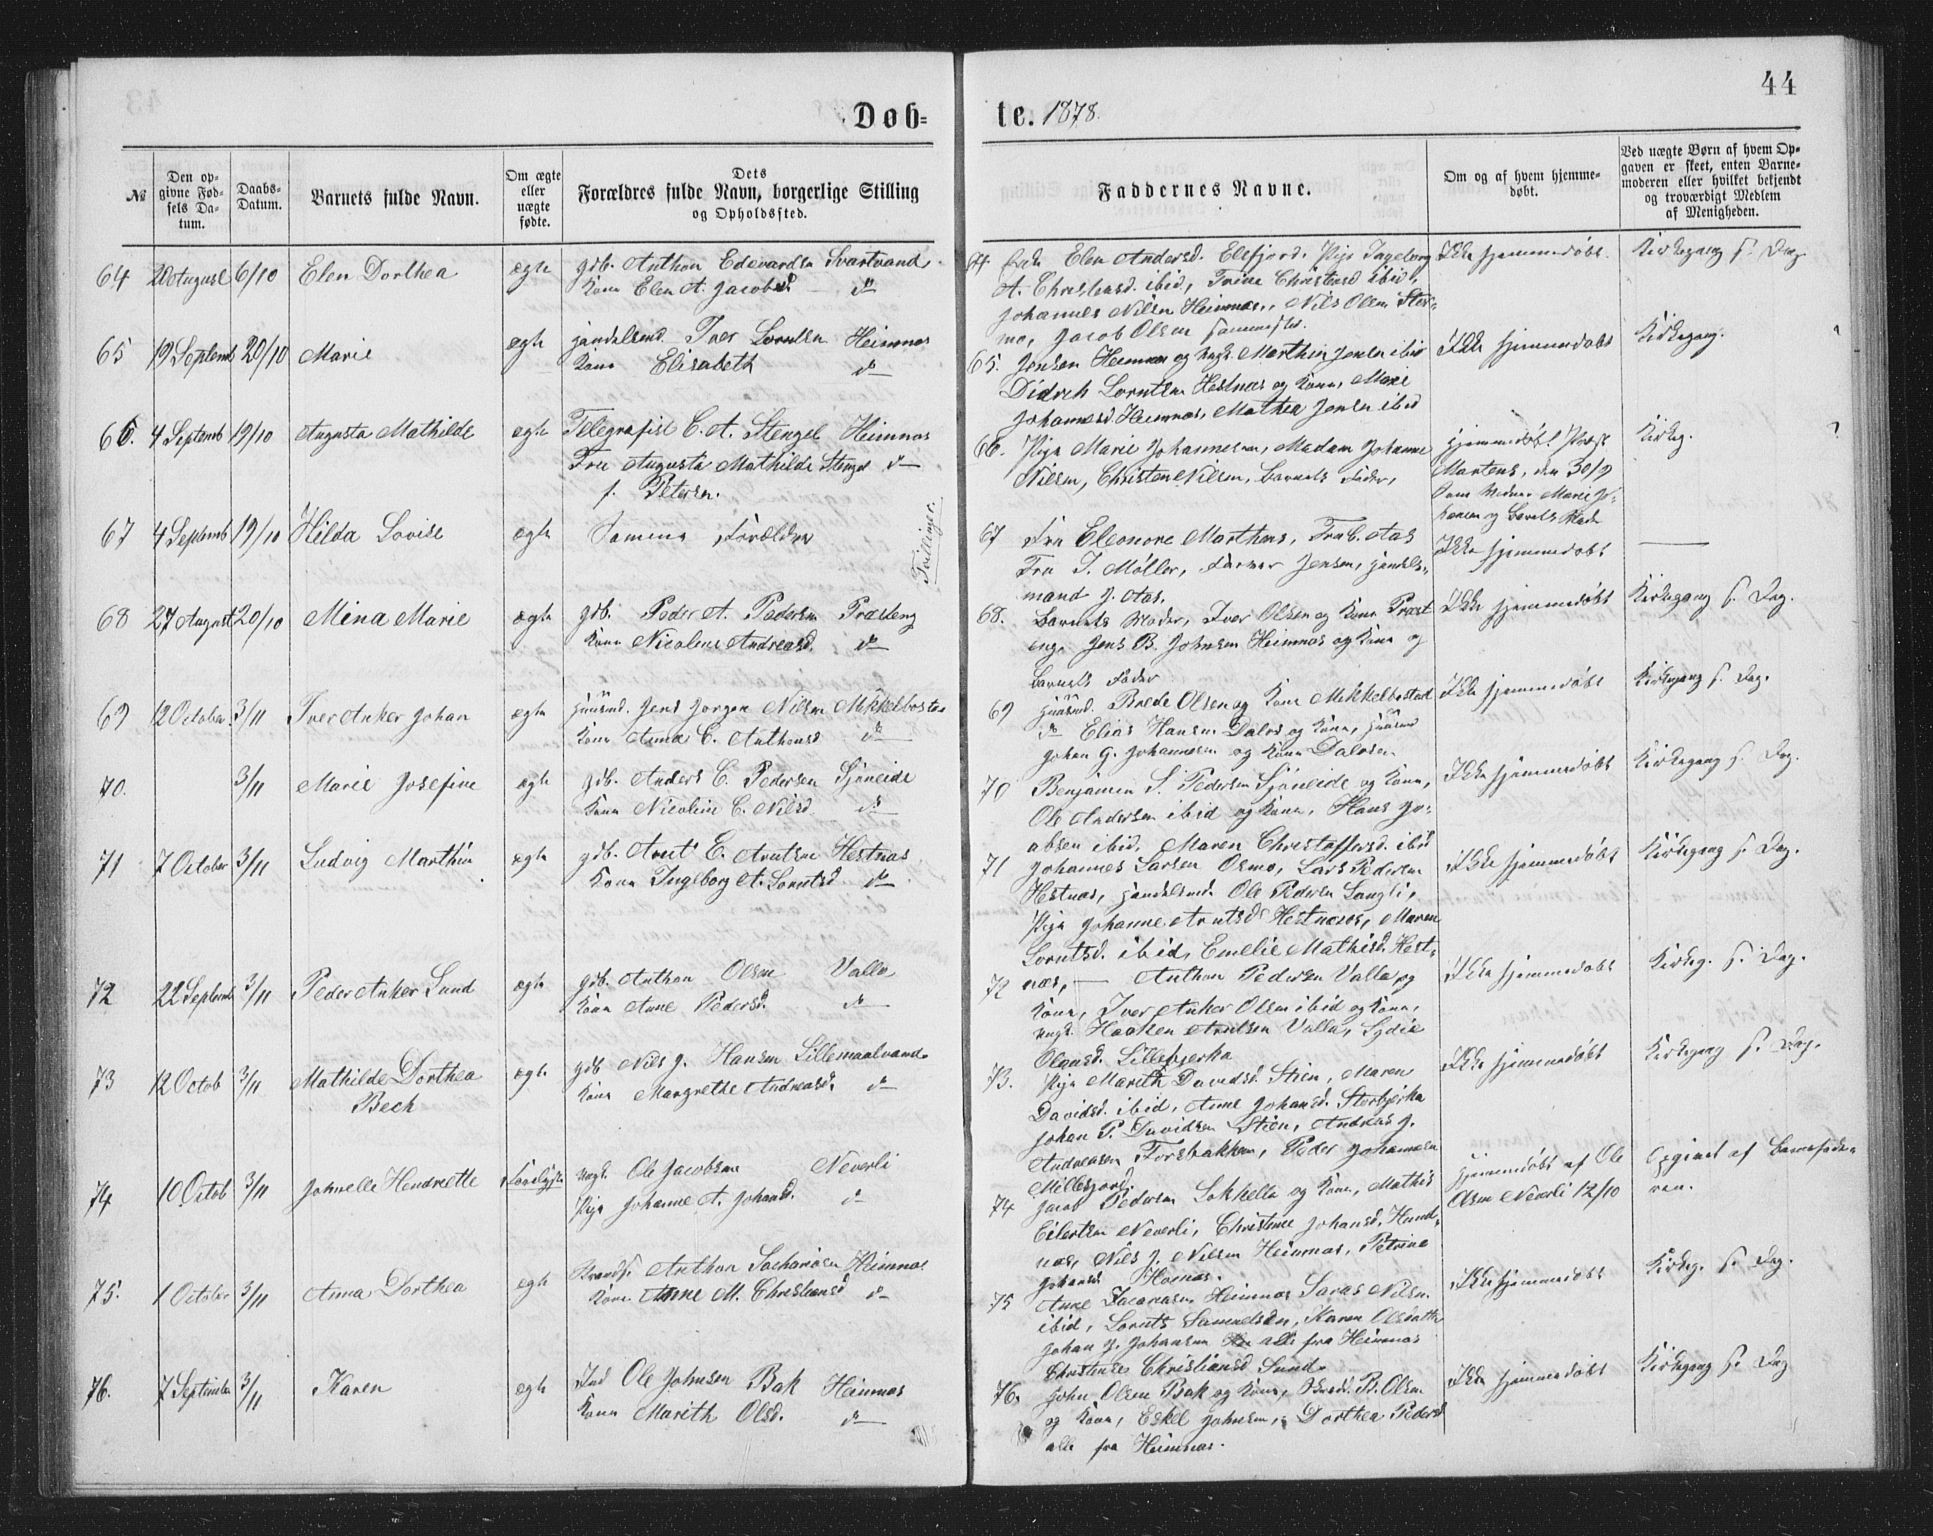 44
Døb=
te. 1878.
№
Den op-
givne Fød-
sels Da-
tum.
Daabs-
Datum.
Barnets fulde Navn.
Om ægte
eller
uægte
fødte.
Dets
Forældres fulde Navn, borgerlige Stilling
og Opholdssted.
Faddernes Navne.
Om og af hvem hjemme-
døbt.
Ved uægte Børn af hvem Op-
gaven er skeet, enten Barne-
moderen eller hvilket bekjendt
og troværdigt Medlem
af Menigheden.
64 20 August 6/10 Elen Dorthea ægte gdb. Anthon Edevardsen Svartvand
Kone Elen A. Jacobsd. do
Elen Andersd. Elsfjord, Pige Ingeborg
A. Christiansd. ibid, Trine Christiansd ibid,
Johannes Nilsen Heimnæs, Nils Olsen Stor-
mo, Jacob Olsen sammested.
Ikke hjemmedøbt. Kirkegang s. Dag.
65 19 Septemb 20/10 Marie ægte handelsmd. Iver Lorntsen Heimnæs
Kone Elisabeth do
65. Jensen Heimnæs og ungk. Marthin Jensen ibid
Didrich Lorntsen Hestnæs og Kone, Marie
Johannesd Heimnæs, Mathea Jensen ibid
Ikke hjemmedøbt Kirkegang.
66. 4 Septemb 19/10 Augusta Mathilde ægte Telegrafist C. A. Stengel Heimnæs
Fru Augusta Mathilde Stengel do
f. Petersen.
66. Pige Marie Johannesen, Madam Johanne
Nilsen, Christen Nilsen, Barnets Fader,
hjemmedøbt Præst
Martens, den 30/9
Kirkeg.
67 4 Septemb 19/10 Hilda Lovise ægte Samme Forældre
Tvillinger.
67 Fru Eleonore Marthens, Fru C. Aas
Fru I. Møller, Farver Jensen, handels-
mand J. Aas.
Ikke hjemmedøbt
68 27 August 20/10 Mina Marie ægte gdb. Peder A. Pedersen Præsteng
Kone Nicoline Andreasd. do
68. Barnets Moder, Iver Olsen og Kone Præst
enge Jens B. Johnsen Heimnæs og Kone og
Barnets Fader
Ikke hjemmedøbt Kirkegang s. Dag.
69 12 October 3/11 Iver Anker Johan ægte huusmd. Jens Jørgen Nilsen Mikkelbosta
Kone Anna C. Anthonsd do
69 huusmd. Brede Olsen og Kone Mikkelbostad
do Elias Hansen Dalos og Kone, huusm
Johan G. Johannesen og Kone Dalosen
Ikke hjemmedøbt Kirkegang s. Dag.
70. 3/11 Marie Josefine ægte gdb. Anders C. Pedersen Sjøneide
Kone Nicoline C. Nilsd. do
70 Benjamin S. Pedersen Sjøneide og Kone,
Ole Andersen ibid og Kone, Hans Ja-
cobsen ibid, Maren Christoffersd. ibid
Ikke hjemmedøbt Kirkegang s. Dag.
71 7 October 3/11 Ludvig Marthin ægte gdb. Arnt E. Arntsen Hestnæs
Kone Ingeborg A. Lorntsd do
71 Johannes Larsen Osmo, Lars Pedersen
Hestnæs, handelsmd. Ole Pedersen Langli,
Pige Johanne Arntsd Hestnæs, Maren
Lorntsd. ibid, Emelie Mathisd. Hest-
næs,
Ikke hjemmedøbt Kirkegang s. Dag.
72 22 Septemb 3/11 Peder Anker Lund ægte gdb. Anthon Olsen Valla
Kone Anne Pedersd. do
72 Anthon Pedersen Valla og
Kone, Iver Anker Olsen ibid og Kone,
ungk. Haaken Arntsen Valla, Lydia
Olausd. Lillebjerka
Ikke hjemmedøbt Kirkeg. s. Dag.
73 12 Octob 3/11 Mathilde Dorthea
Bech
ægte gdb Nils J. Hansen Lillemaalvand
Kone Margrethe Andreasd. do
73. Pige Marith Davidsd. Stien, Maren
Davidsd. ibid, Anne Johansd. Storbjerka
Johan P. Davidsen Stien, Andreas J.
Andreasen Forsbakken, Peder Johannesen
Millesjord.
Ikke hjemmedøbt Kirkegang s. Dag.
74 10 Octob 3/11 Johnelle Hendriette uægte ungk. Ole Jacobsen Neverli
Pige Johanne A. Johansd. do
74 Jacob Pedersen Løkkella og Kone, Mathis
Eilertsen Neverli, Christense Johansd. Hund-
næs, Nils J. Nilsen Heimnæs, Petrine
Johansd. Hornæs.
hjemmedøbt af Ole
Olsen Neverli 12/10
Opgivet af Barnefade-
ren.
75. 1 October 3/11 Anna Dorthea ægte Strands. Anthon Sachariasen Heimnæs
Kone Anne M. Christiansd do
75 Anne Zacariasen Heimnæs Saras Nilsen
ibid, Lornts Samuelsen, Karen Olsdatte
Johan J. Johansen alle fra Heimnæs
Christense Christiansd Sund.
Ikke hjemmedøbt Kirkeg. s. Dag.
76. 7 September 3/11 Karen ægte Ind Ole Johnsen Bak Heimnæs
Kone Marith Olsd. do
76. John Olsen Bak og Kone, B. Olsen
og Kone, Eskel Johnsen, Dorthea Pedersd
alle fra Heimnæs.
Ikke hjemmedøbt Kirkegang s. Dag